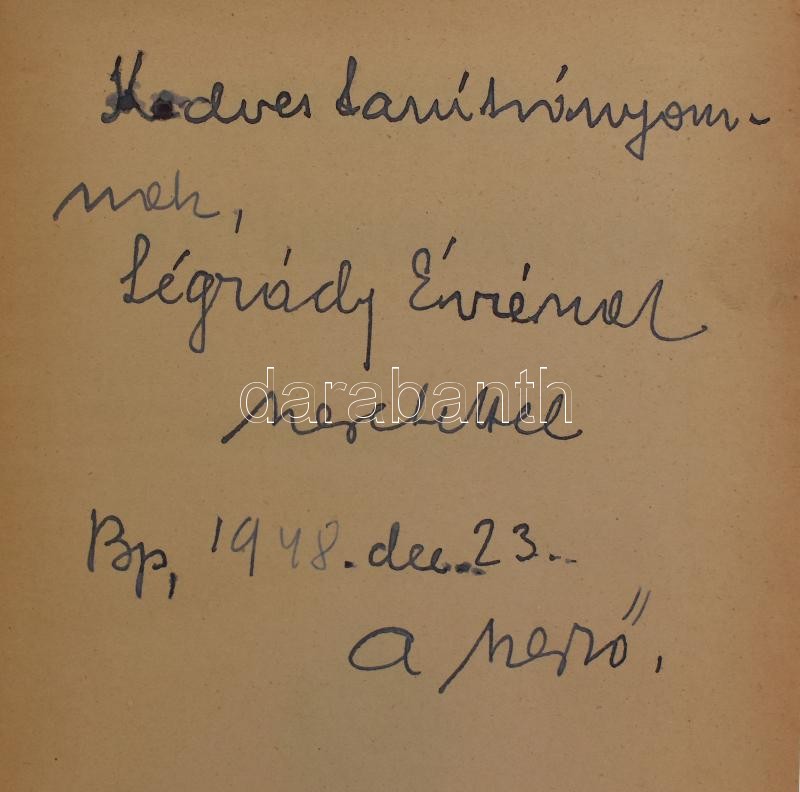 Kedves tanítványom-
nak,
Légrády Évának
szeretettel
darabanth
Bp, 1948. dec. 23.
a szerző.